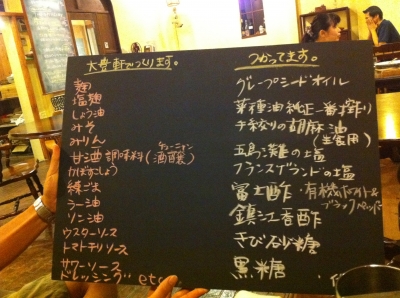 大貴軒でつくります。
麹
塩麹
しょうゆ
みそ
みりん
甘酒調味料(酒醸)
チューニャン
かぼすこしょう
練ごま
ラー油
ソニ油
ウスターソース
トマトチリソース
サワーソース
ドレッシング etc
つかってます。
グレープシードオイル
菜種油純正一番搾り
手絞りの胡麻油
(生食用)
五島灘の塩
フランスゲランドの塩
富士酢・有機ホワイト&
ブラックペッパー
鎮江香酢
きび砂糖
黒糖